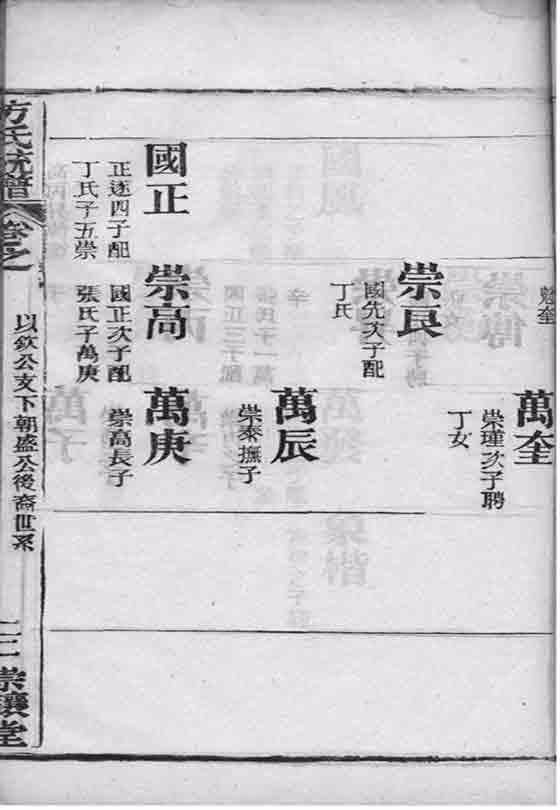 奎
萬奎
崇瑾次子聘
丁女
崇良
國先次子配
丁氏
萬辰
崇泰撫子
國正
正遂四子配
丁氏子五崇
崇高
國正次子配
張氏子萬庚
萬庚
崇高長子
方氏統譜
卷之
以欽公支下朝盛公後裔世系
崇讓堂